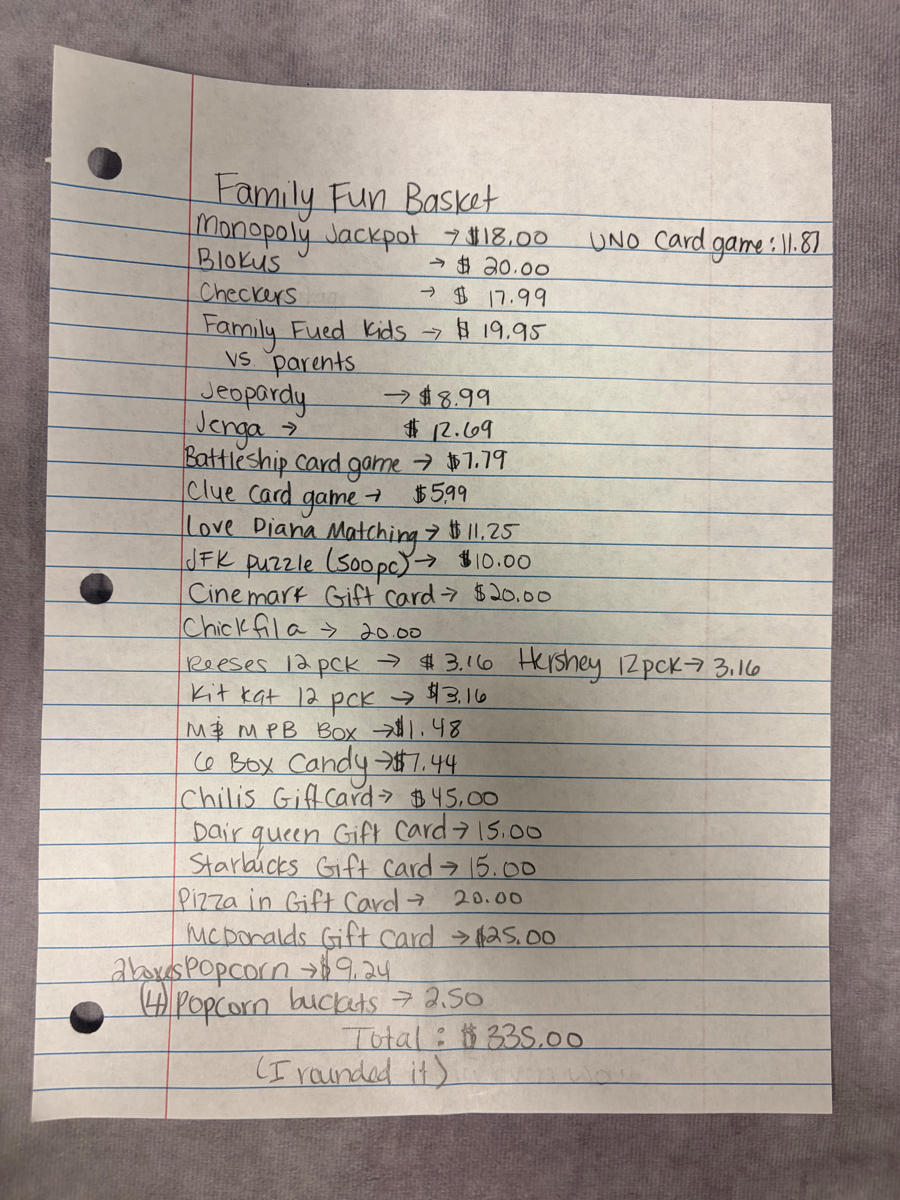 Family Fun Basket
Monopoly Jackpot → $18.00 UNO Card game: 11.87
Blokus → $ 20.00
Checkers → $ 17.99
Family Fued Kids → $ 19.95
vs. parents
Jeopardy → $8.99
Jenga → $ 12.69
Battleship card game → $7.79
Clue card game → $5.99
Love Diana Matching → $11.25
JFK puzzle (500pc) → $10.00
Cinemark Gift card → $20.00
Chickfila → 20.00
Reeses 12pck → $ 3.16 Hershey 12pck → 3.16
Kit kat 12 pck → $3.16
M&M PB Box → $1.48
6 Box Candy → $7.44
Chilis Gift Card → $45.00
Dair queen Gift Card → 15.00
Starbucks Gift Card → 15.00
Pizza in Gift Card → 20.00
McDonalds Gift Card → $25.00
2boxes Popcorn → $9.24
(4) Popcorn buckets → 2.50
Total: $335.00
(I rounded it)